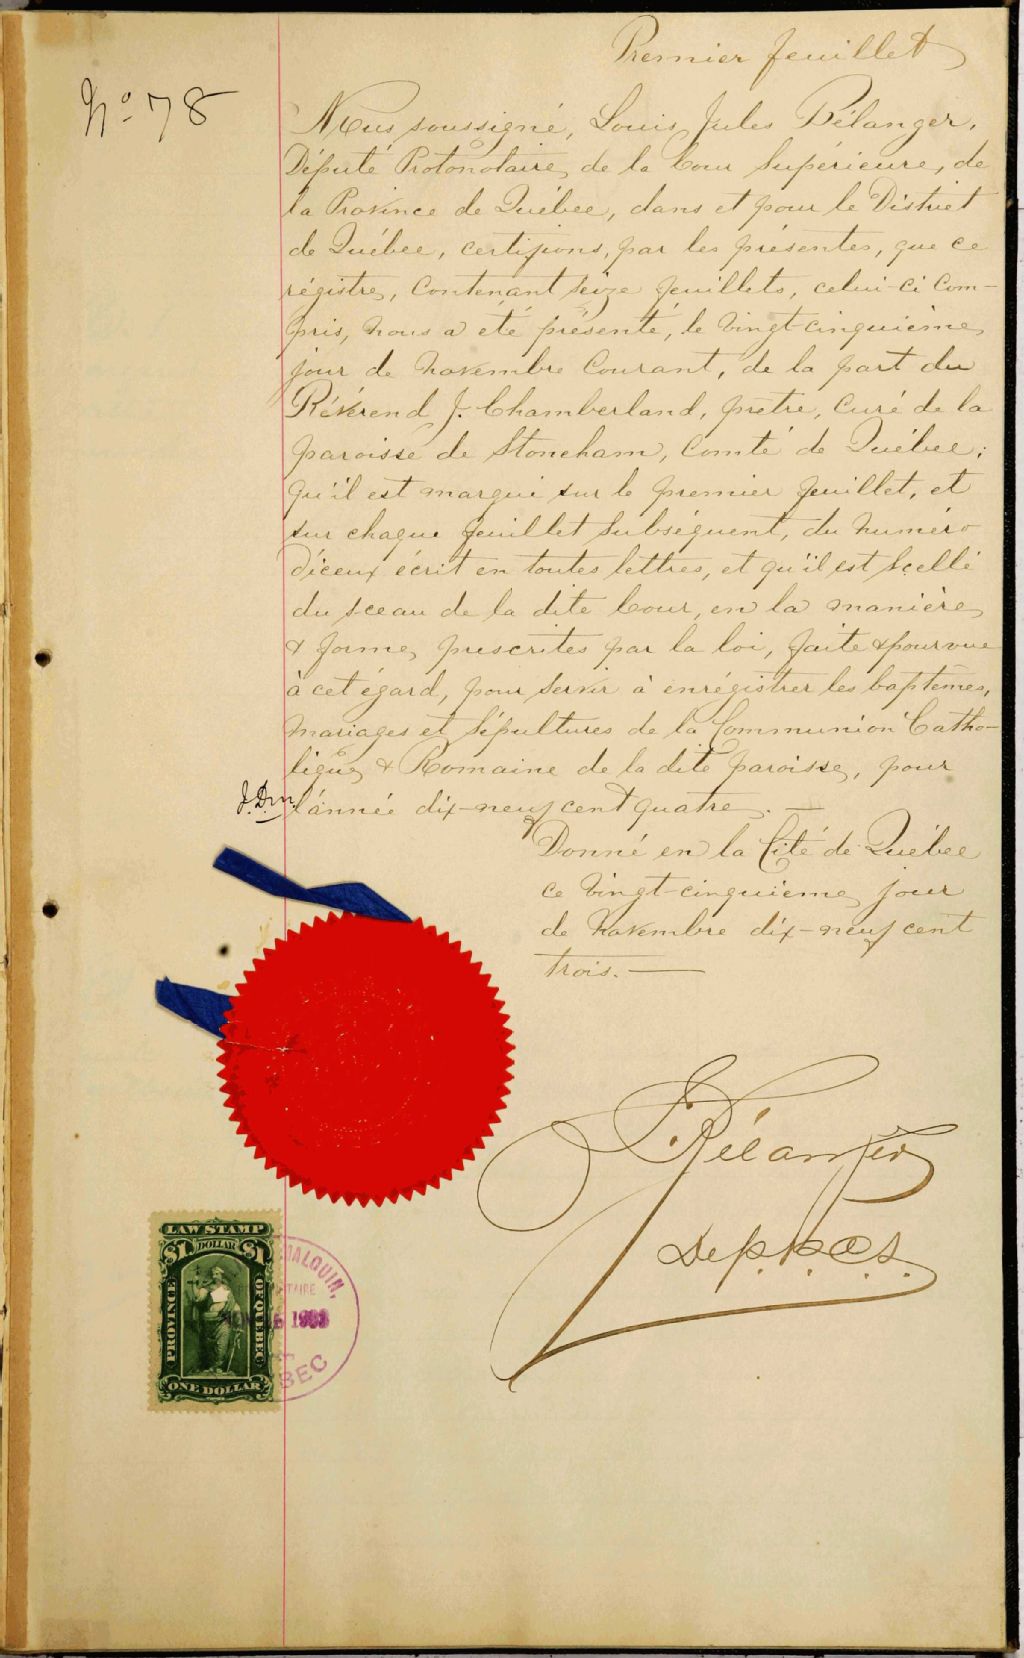 Premier feuillet
No 78
Nous soussigné, Louis Jules Bélanger,
Député Protonotaire, de la Cour Supérieure, de
la Province de Québec, dans et pour le District
de Québec, certifions, par les présentes, que ce
régistre, contenant seize feuillets, celui-ci com-
pris, nous a été présenté, le vingt-cinquième
jour de novembre courant, de la part du
Révérend J. Chamberland, prêtre, curé de la
paroisse de Stoneham, Comté de Québec;
qu'il est marqué sur le premier feuillet, et
sur chaque feuillet subséquent, du numéro
d'iceux écrit en toutes lettres, et qu'il est scellé
du sceau de la dite Cour, en la manière
& forme, prescrites par la loi, faite & pourvue
à cet égard, pour servir à enrégistrer les baptêmes,
mariages et sépultures de la Communion Catho-
lique & Romaine de la dite paroisse, pour
J.Dm. l'année dix-neuf cent quatre. —
Donné en la Cité de Québec
ce vingt-cinquième jour
de Novembre dix-neuf cent
trois. —
J. Bélanger
Dep. p. c. s.
LAW STAMP
$1 DOLLAR $1
PROVINCE OF QUEBEC
ONE DOLLAR
MALOUIN,
TAIRE
1903
BEC